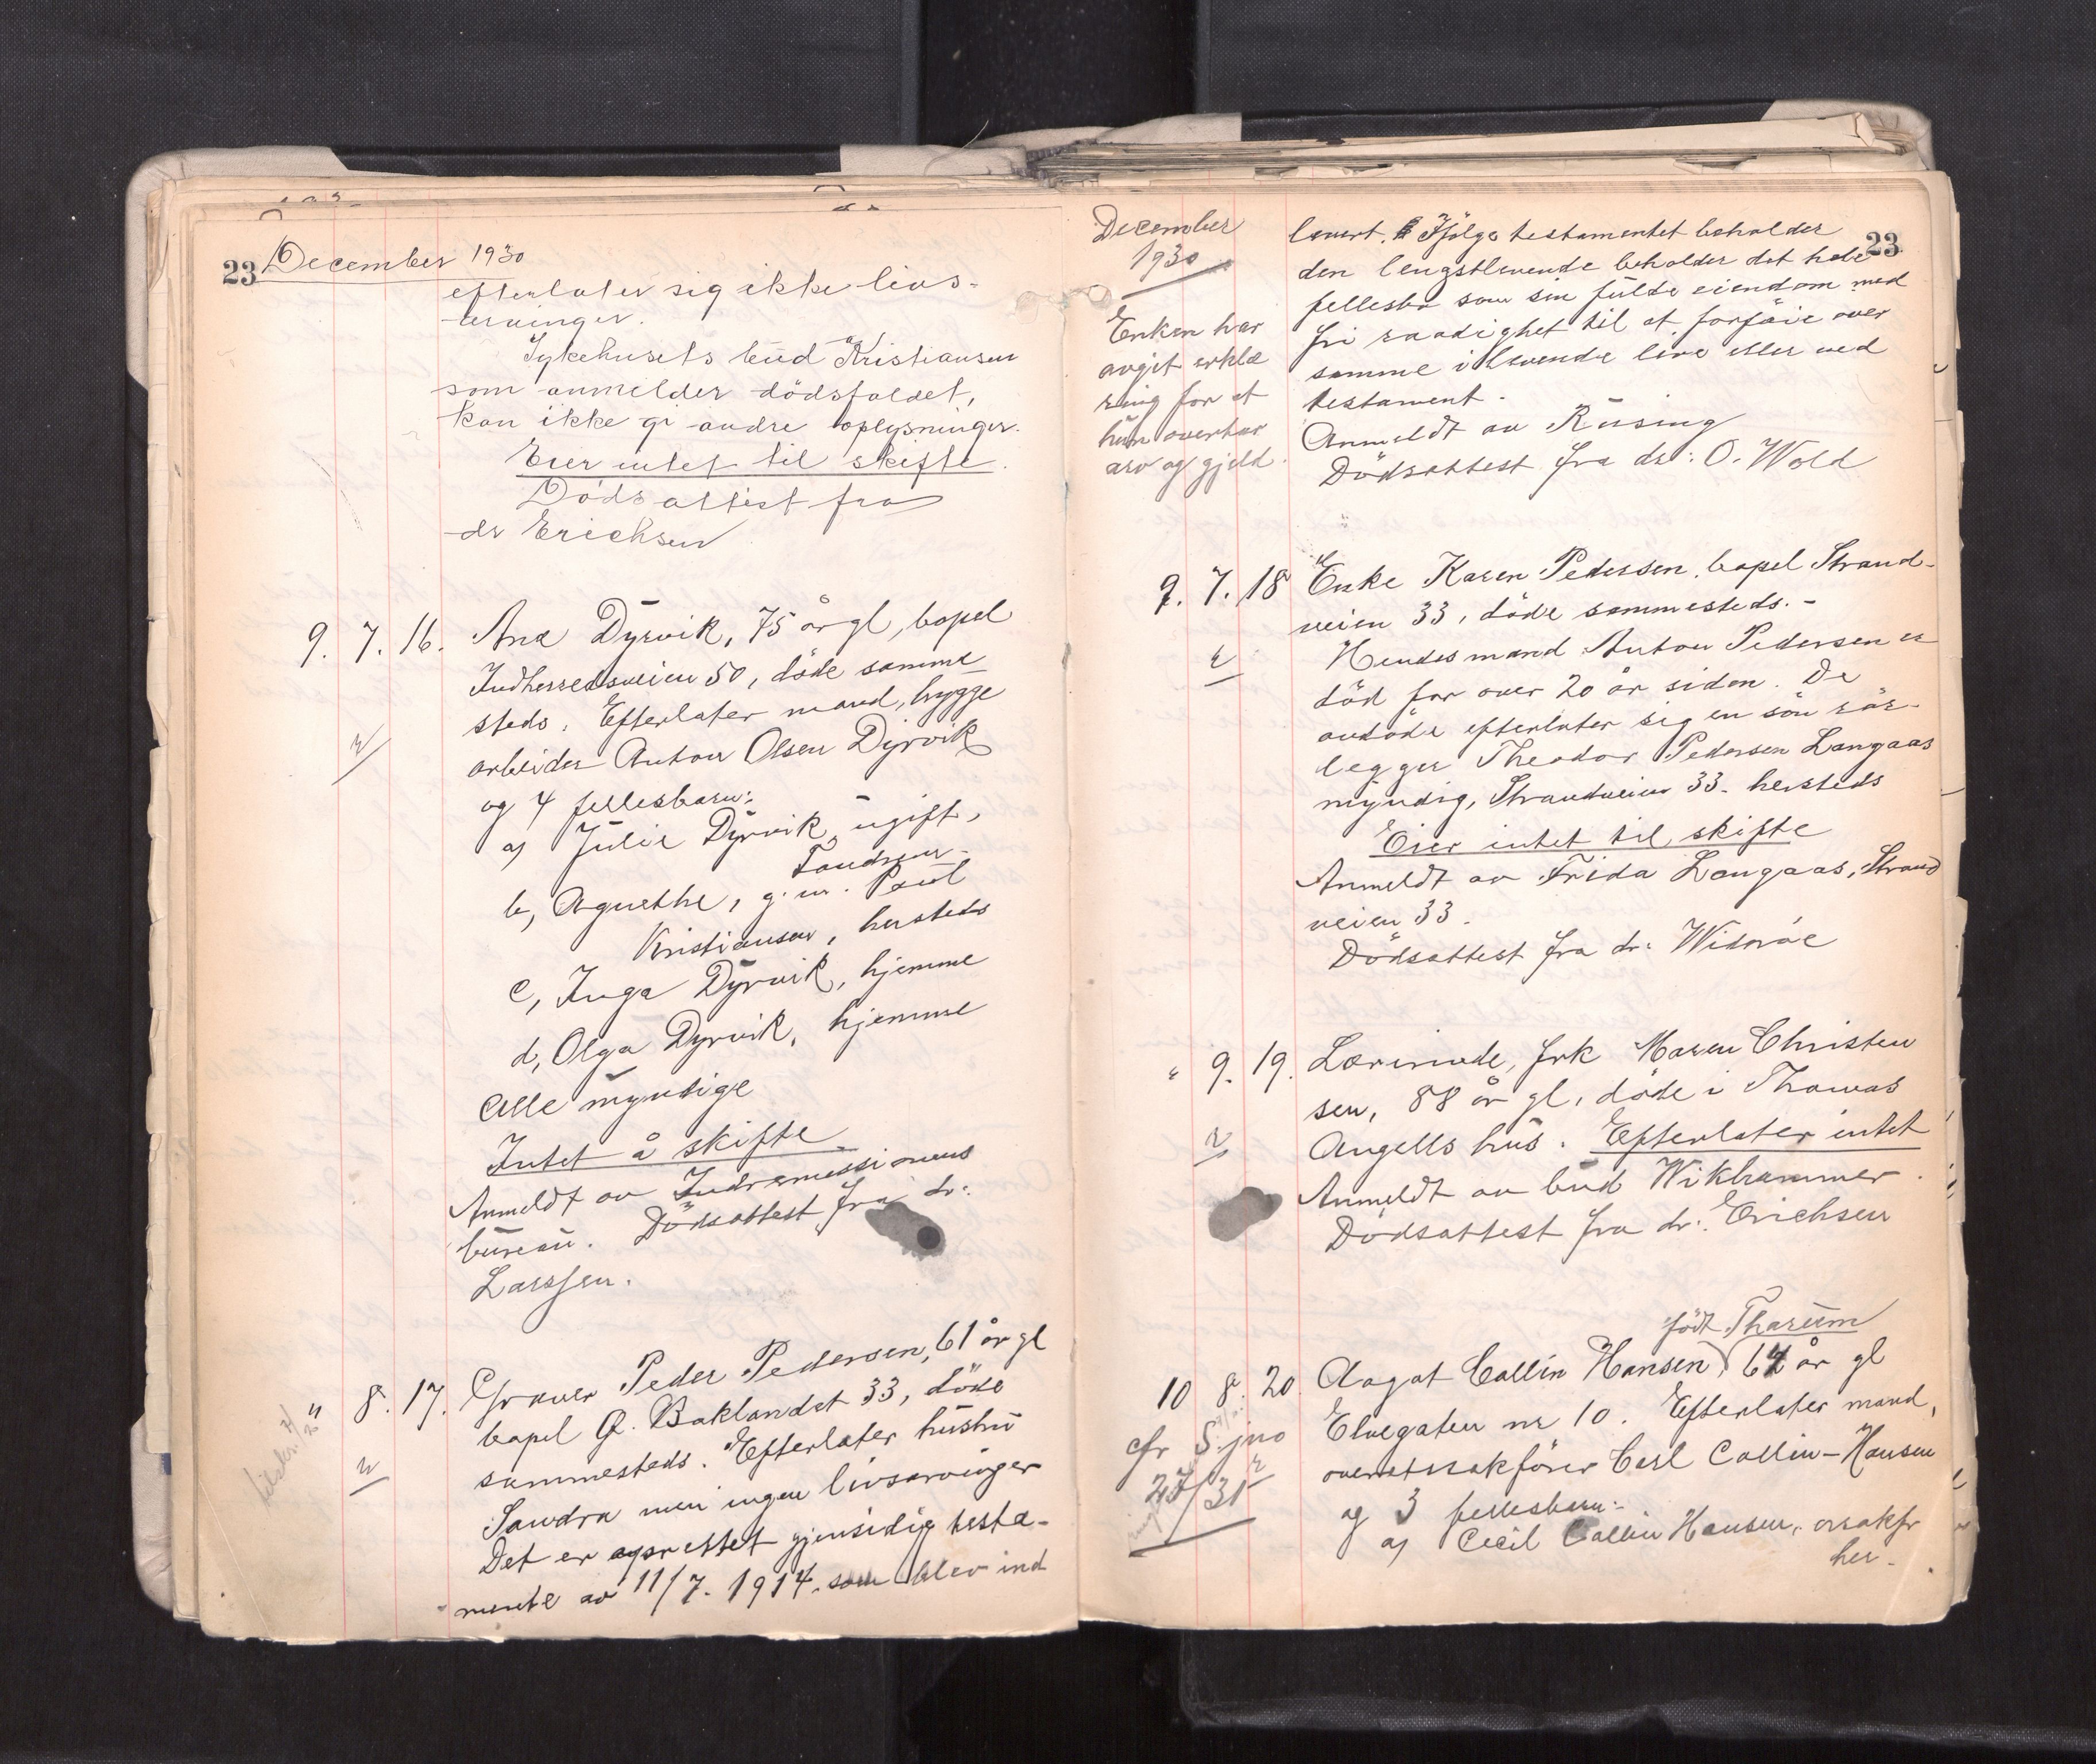 23 December 1930
efterlater sig ikke livs-
arvinger.
Sykehusets bud Kristiansen
som anmelder dödsfaldet,
kan ikke gi andre oplysninger.
Eier intet til skifte.
Dödsattest fra
dr Erichsen
9. 7. 16. Ana Dyrvik, 75 år gl, bopel
Indherredsveien 50, döde samme
steds. Efterlater mand, brygge
arbeider Anton Olsen Dyrvik
og 4 fellesbarn:
a) Julie Dyrvik, ugift,
b, Agnethe, g. m. Paul
Kristiansen, hersteds
c, Inga Dyrvik, hjemme
d, Olga Dyrvik, hjemme
Alle myndige
Intet å skifte
Anmeldt av Indremissionens
bureau. Dödsattest fra dr:
Larssen.
" 8. 17. Graver Peder Pedersen, 61 år gl
bopel Ø. Baklandet 33, döde
sammesteds. Efterlater hustru
Sandra men ingen livsarvinger
Det er oprettet gjensidig testa-
mente av 11/7. 1914. som blev ind
December
1930
23
Enken har
avgit erklæ
ring for at
hun overtar
arv og gjeld.
levert. Ifölge testamentet beholder
den lengstlevende beholder det hele
fellesbo som sin fulde eiendom med
fri raadighet til at forföie over
samme i levende live eller ved
testament.
Anmeldt av Rusing
Dödsattest fra dr: O. Wold
9. 7. 18 Enke Karen Pedersen, bopel Strand-
veien 33, döde sammesteds. -
Hendes mand Anton Pedersen er
död for over 20 år siden. De
avdöde efterlater sig en sön rör-
legger Theodor Pedersen Langaas
myndig, Strandveien 33. hersteds
Eier intet til skifte
Anmeldt av Frida Langaas, Strand
veien 33.
Dödsattest fra dr: Wideröe
" 9. 19. Lærerinde, frk Maren Christen
sen, 88 år gl, döde i Thomas
Angells hus. Efterlater intet
Anmeldt av bud Wikhammer.
Dödsattest fra dr: Erichsen
födt Tharum
10 8. 20 Aagot Collin Hansen, 64 år gl
Elvegaten nr 10. Efterlater mand,
overretssakförer Carl Collin-Hansen
og 3 fellesbarn:
a) Cecil Collin Hansen, orsakfr
her.
cfr S. jno
27/31